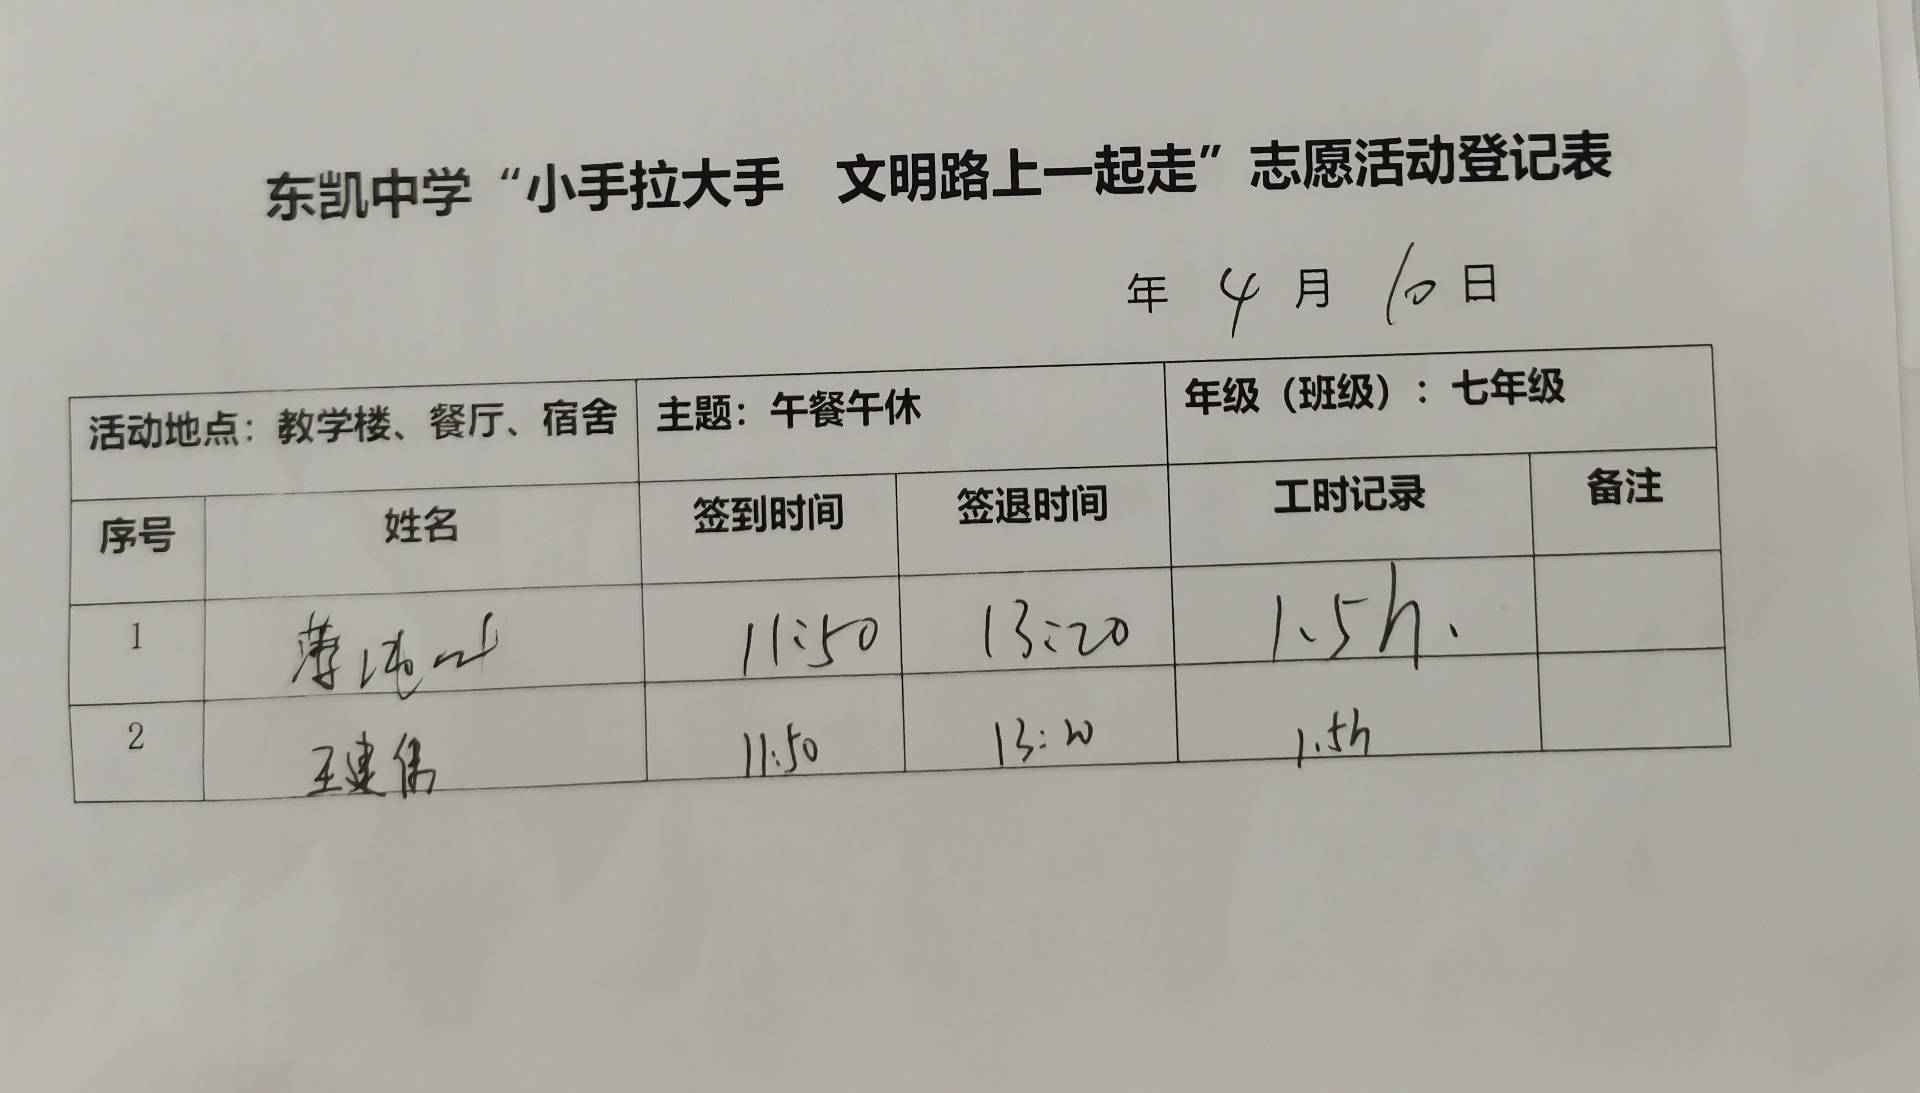 东凯中学“小手拉大手 文明路上一起走”志愿活动登记表
年 4 月 10 日
活动地点：教学楼、餐厅、宿舍 主题：午餐午休 年级（班级）：七年级
序号 姓名 签到时间 签退时间 工时记录 备注
1 11:50 13:20 1.5h.
2 王建伟 11:50 13:20 1.5h